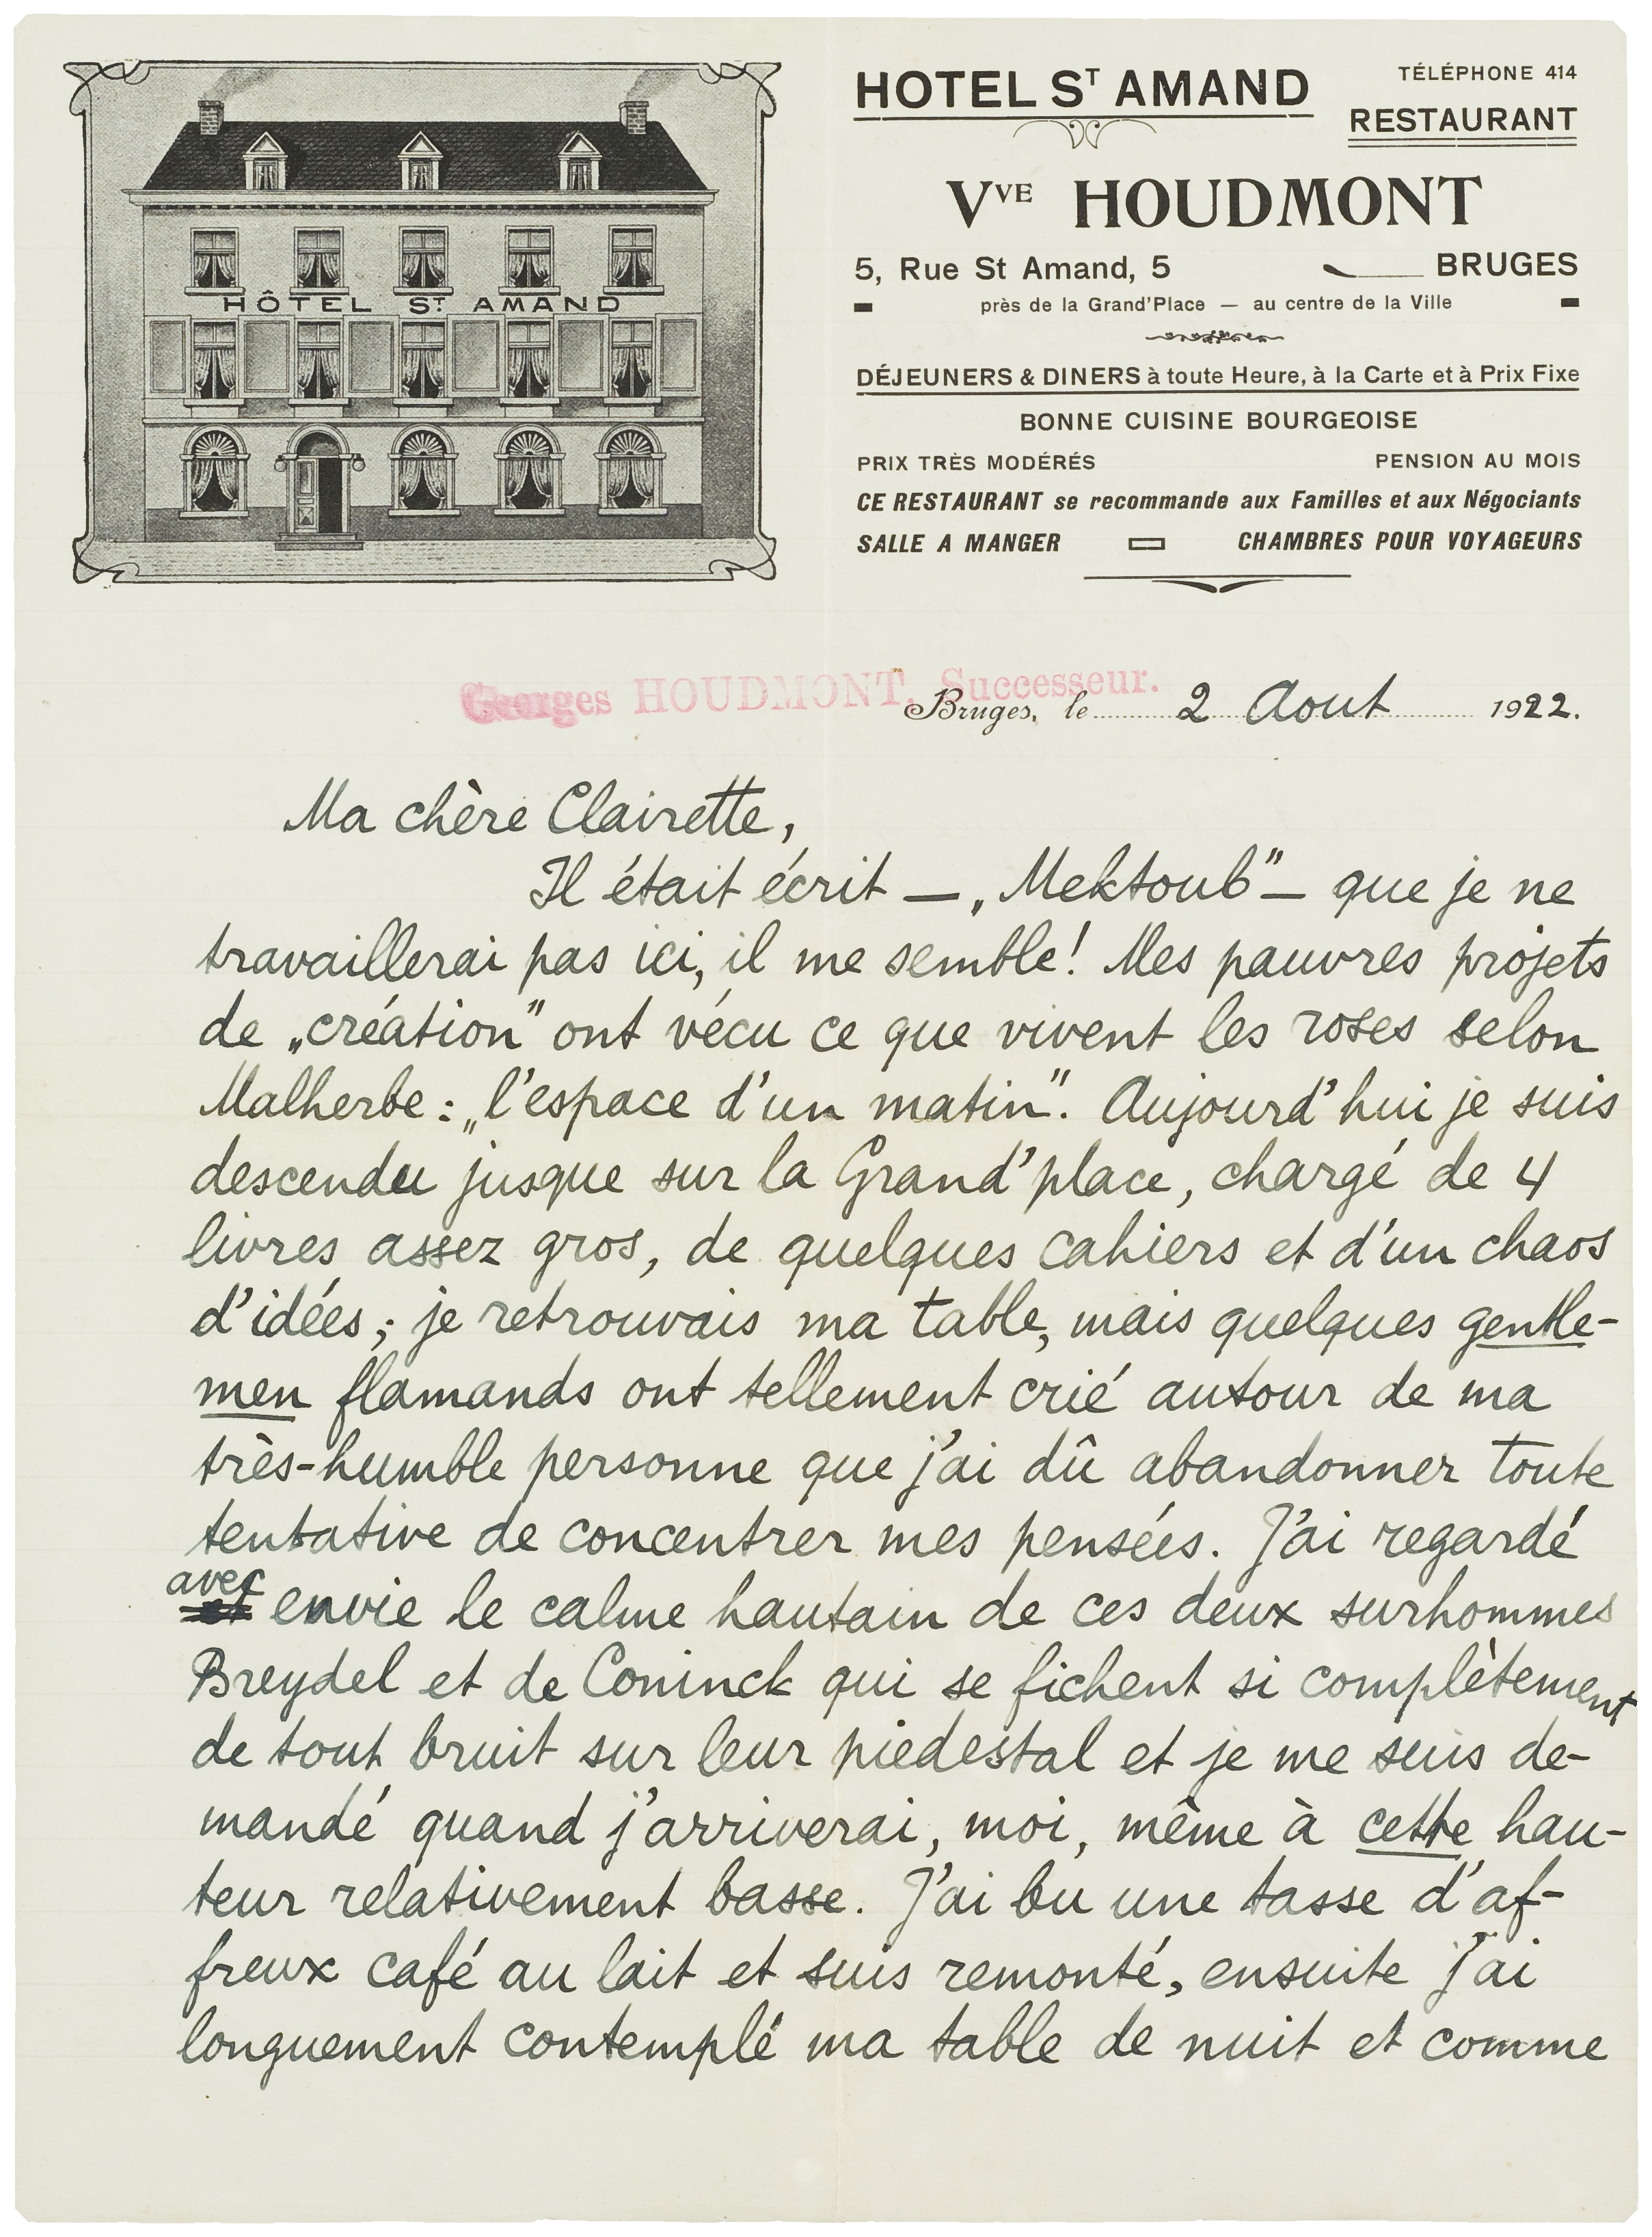 HÔTEL ST AMAND
HOTEL ST AMAND
TÉLÉPHONE 414
RESTAURANT
VVE HOUDMONT
5, Rue St Amand, 5 BRUGES
près de la Grand'Place — au centre de la Ville
DÉJEUNERS & DINERS à toute Heure, à la Carte et à Prix Fixe
BONNE CUISINE BOURGEOISE
PRIX TRÈS MODÉRÉS PENSION AU MOIS
CE RESTAURANT se recommande aux Familles et aux Négociants
SALLE A MANGER CHAMBRES POUR VOYAGEURS
Georges HOUDMONT, Successeur.
Bruges, le 2 Aout 1922.
Ma chère Clairette,
Il était écrit — „Mektoub" — que je ne
travaillerai pas ici, il me semble! Mes pauvres projets
de „création" ont vécu ce que vivent les roses selon
Malherbe: „l'espace d'un matin". Aujourd'hui je suis
descendu jusque sur la Grand'place, chargé de 4
livres assez gros, de quelques cahiers et d'un chaos
d'idées; je retrouvais ma table, mais quelques gentle-
men flamands ont tellement crié autour de ma
très-humble personne que j'ai dû abandonner toute
tentative de concentrer mes pensées. J'ai regardé
avec envie le calme hautain de ces deux surhommes
Breydel et de Coninck qui se fichent si complètement
de tout bruit sur leur piedestal et je me suis de-
mandé quand j'arriverai, moi, même à cette hau-
teur relativement basse. J'ai bu une tasse d'af-
freux café au lait et suis remonté, ensuite j'ai
longuement contemplé ma table de nuit et comme